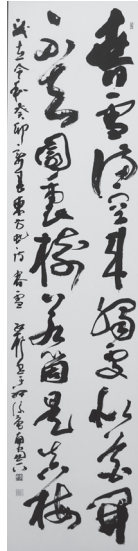 春雪満空来觸處似花開
不知園裏樹若箇是真梅
歳在令和癸卯 東方虬詩 春雪